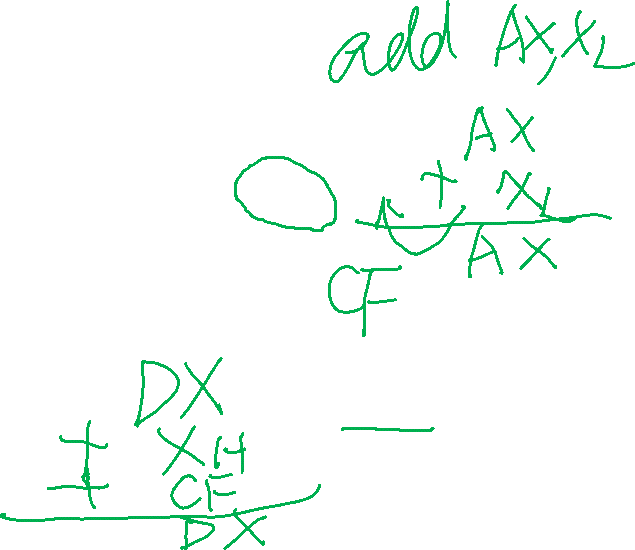 add AX, XL
AX
+ XL
AX
CF
DX
XH
+ CF
DX